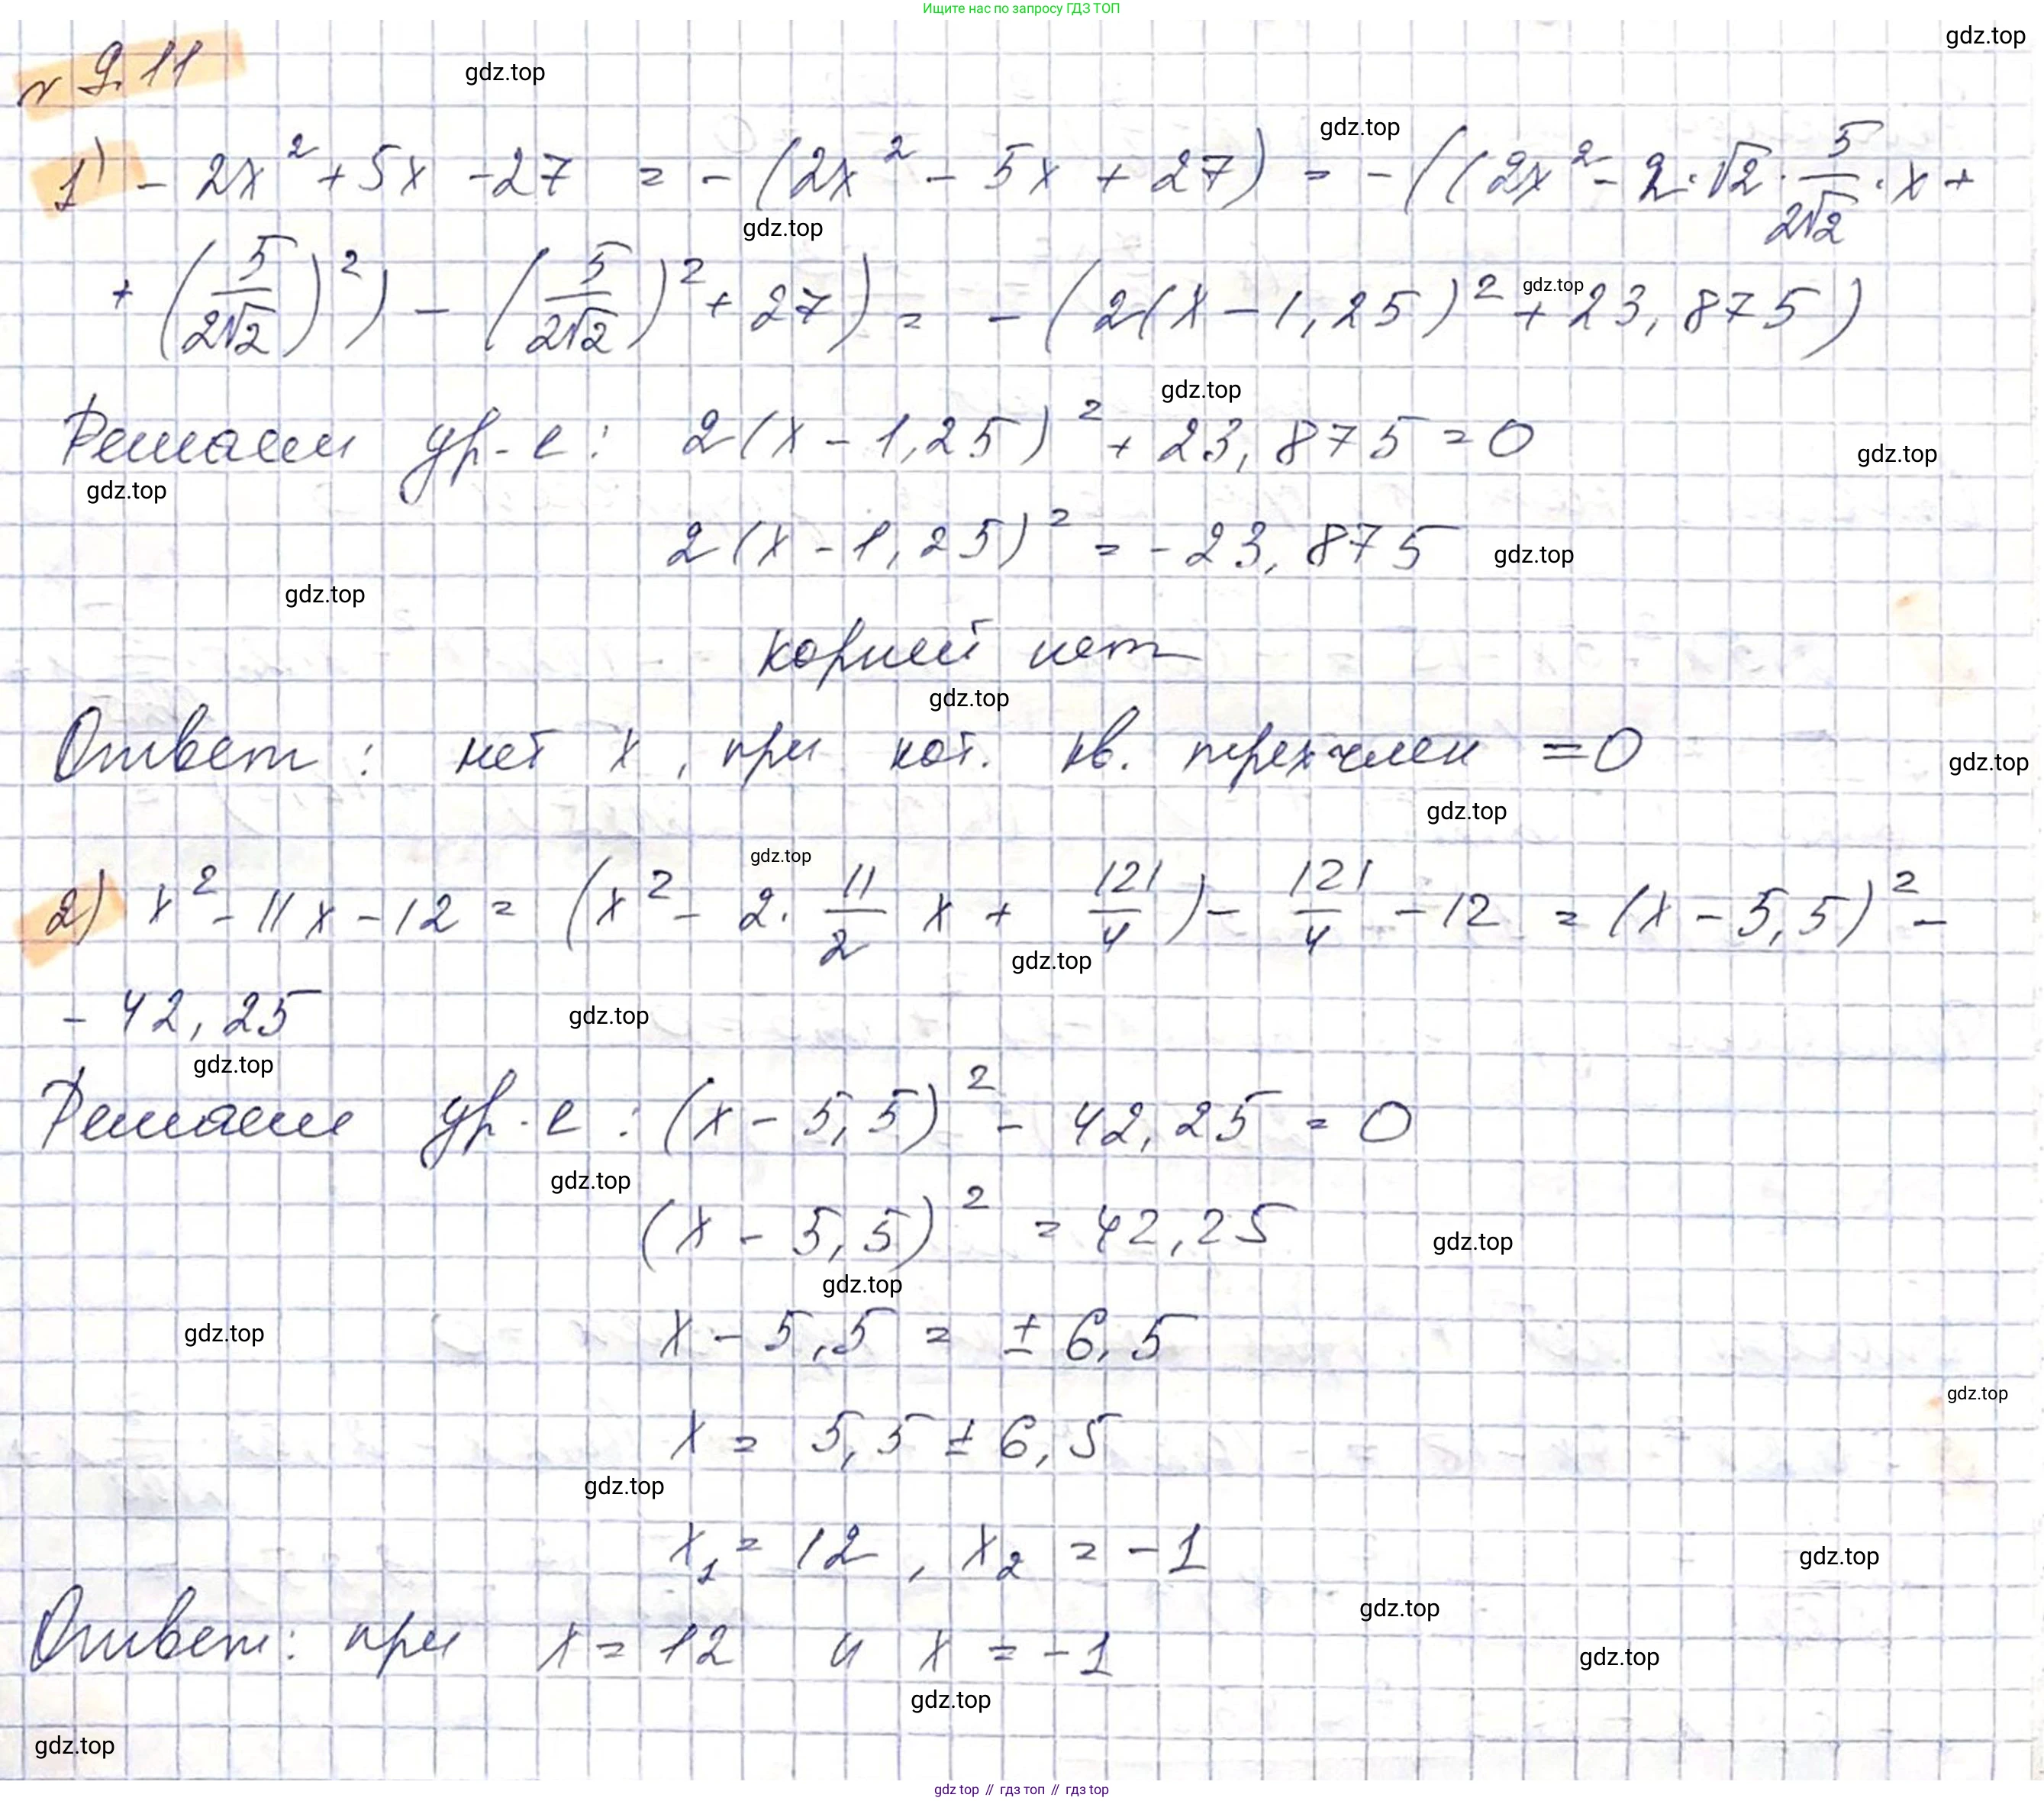 Ищите нас по запросу ГДЗ ТОП
gdz.top
№ 9.11
gdz.top
gdz.top
1) - 2x² + 5x - 27 = - (2x² - 5x + 27) = - ((2x² - 2·√2 · 5/2√2 · x +
gdz.top
+ (5/2√2)²) - (5/2√2)² + 27) = - (2(x - 1,25)² + 23,875)
gdz.top
gdz.top
Решаем ур-е: 2(x - 1,25)² + 23,875 = 0
gdz.top
gdz.top
2(x - 1,25)² = - 23,875
gdz.top
gdz.top
корней нет
gdz.top
Ответ: нет x, при кот. кв. трехчлен = 0
gdz.top
gdz.top
gdz.top
2) x² - 11x - 12 = (x² - 2· 11/2 x + 121/4) - 121/4 - 12 = (x - 5,5)² -
gdz.top
- 42,25
gdz.top
gdz.top
Решаем ур-е: (x - 5,5)² - 42,25 = 0
gdz.top
(x - 5,5)² = 42,25
gdz.top
gdz.top
x - 5,5 = ± 6,5
gdz.top
gdz.top
x = 5,5 ± 6,5
gdz.top
x₁ = 12, x₂ = -1
gdz.top
gdz.top
Ответ: при x = 12 и x = -1
gdz.top
gdz.top
gdz.top
gdz top // гдз топ // гдз top